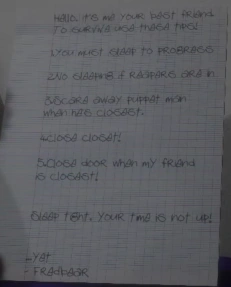 Hello. it's me your best friend
To survive use these tips!
1.You must sleep to progress
2.No sleeping if reapers are in
3.Scare away puppet man
when he's closest.
4.Close closet!
5.Close door when my friend
is closest!
Sleep tight. Your time is not up!
-Yet
- Fredbear